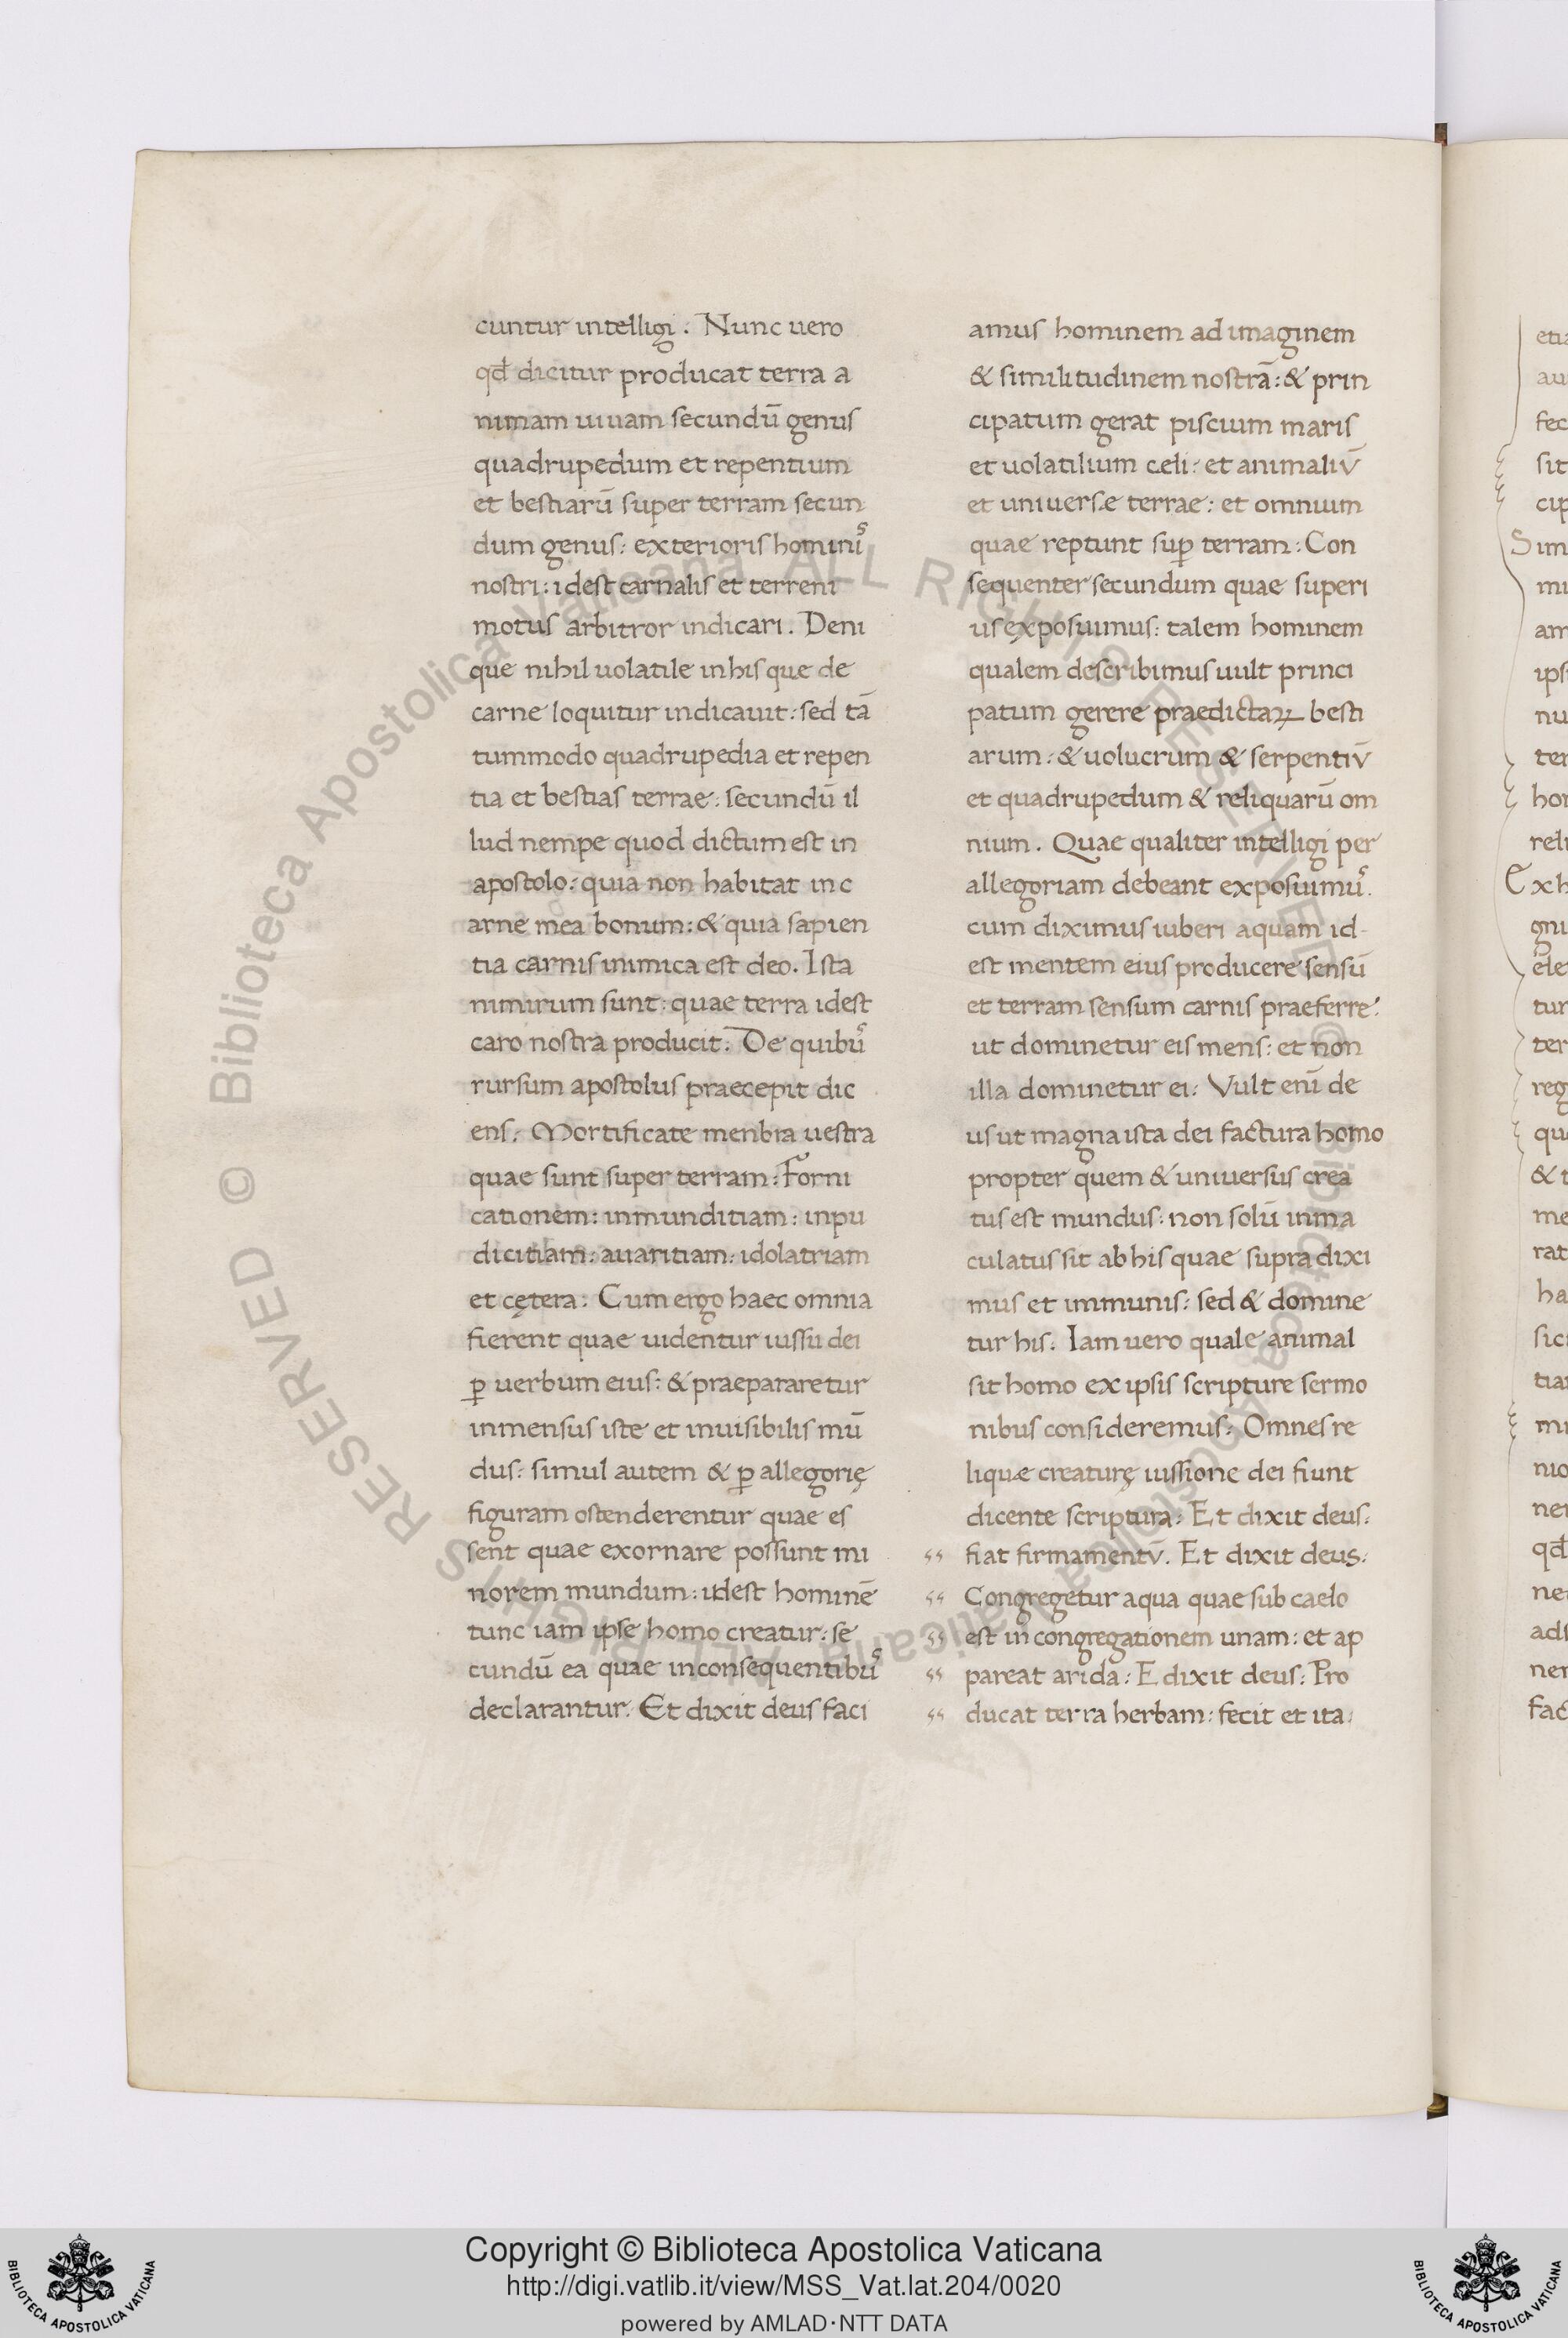 cuntur intelligi. Nunc uero
qđ dicitur producat terra a
nimam uiuam secundū genus
quadrupedum et repentium
et bestiarū super terram secun
dum genus: exterioris hominiˢ
nostri: idest carnalis et terreni
motus arbitror indicari. Deni
que nihil uolatile inhis que de
carne loquitur indicauit: sed tā
tummodo quadrupedia et repen
tia et bestias terrae: secundū il
lud nempe quod dictum est in
apostolo: quia non habitat in c
arne mea bonum: & quia sapien
tia carnis inimica est deo. Ista
nimirum sunt: quae terra idest
caro nostra producit. De quibuˢ
rursum apostolus praecepit dic
ens: Mortificate menbra uestra
quae sunt super terram: Forni
cationem: inmunditiam: inpu
dicitiam: auaritiam: idolatriam
et cętera: Cum ergo haec omnia
fierent quae uidentur iussu dei
ꝑ uerbum eius: & praepararetur
inmensus iste et inuisibilis mū
dus: simul autem & ꝑ allegorię
figuram ostenderentur quae es
sent quae exornare possunt mi
norem mundum: idest hominē
tunc iam ipse homo creatur: se
cundū ea quae inconsequentibuˢ
declarantur: Et dixit deus faci
amus hominem ad imaginem
& similitudinem nostrā: & prin
cipatum gerat piscium maris
et uolatilium celi: et animaliv̄
et uniuersæ terrae: et omnium
quae reptunt suꝑ terram: Con
sequenter secundum quae superi
us exposuimus: talem hominem
qualem describimus uult princi
patum gerere praedictaꝝ besti
arum: & uolucrum & serpentiv̄
et quadrupedum & reliquarū om
nium. Quae qualiter intelligi per
allegoriam debeant exposuimuˢ.
cum diximus iuberi aquam id-
est mentem eius producere sensū
et terram sensum carnis praeferre:
ut dominetur eis mens: et non
illa dominetur ei: Vult enī de
us ut magna ista dei factura homo
propter quem & uniuersus crea
tus est mundus: non solū inma
culatus sit ab his quae supra dixi
mus et immunis: sed & domine
tur his: Iam uero quale animal
sit homo ex ipsis scripture sermo
nibus consideremus: Omnes re
liquæ creaturę iussione dei fiunt
dicente scriptura: Et dixit deus:
fiat firmamentv̄. Et dixit deus:
Congregetur aqua quae sub caelo
est in congregationem unam: et ap
pareat arida: E dixit deus: Pro
ducat terra herbam: fecit et ita:
etia
au
fec
sit
cip
Sim
mi
am
ips
nu
ter
hor
reli
Exh
gni
ele
tur
ter
reg
qu
& t
me
rat
ha
sic
tia
mi
nio
ner
qđ
ne
ads
ner
fac
© Biblioteca Apostolica Vaticana ALL RIGHTS RESERVED
© Biblioteca Apostolica Vaticana ALL RIGHTS RESERVED
Copyright © Biblioteca Apostolica Vaticana
http://digi.vatlib.it/view/MSS_Vat.lat.204/0020
powered by AMLAD·NTT DATA
BIBLIOTECA APOSTOLICA VATICANA
BIBLIOTECA APOSTOLICA VATICANA